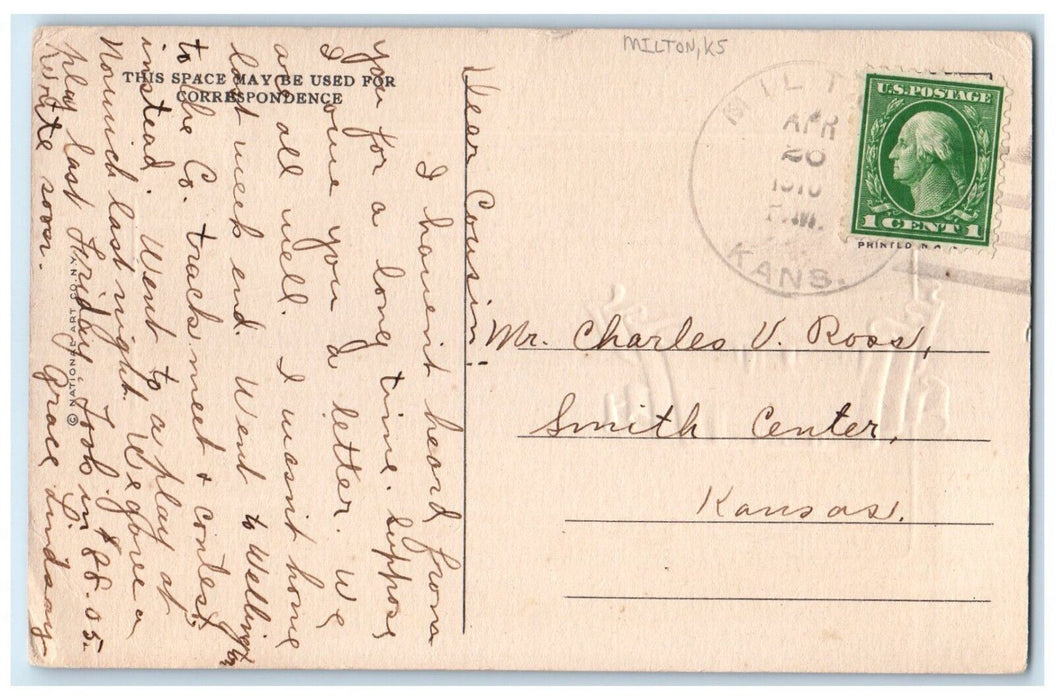 MILTON, KS
THIS SPACE MAY BE USED FOR
CORRESPONDENCE
MILT
APR
20
KANS.
U.S. POSTAGE
1 CENT 1
PRINTED
Mr. Charles V. Ross,
Smith Center,
Kansas.
Dear Cousin:
I haven't heard from
you for a long time. Suppose
I owe you a letter. We
are all well. I wasn't home
last week end. Went to Wellington
to the Co. track meet & contest
instead. Went to a play at
Norwich last night. We gave a
play last Friday. Took in $28.05.
Write soon. Grace Lindsay
© NATIONAL ART CO. N.Y.